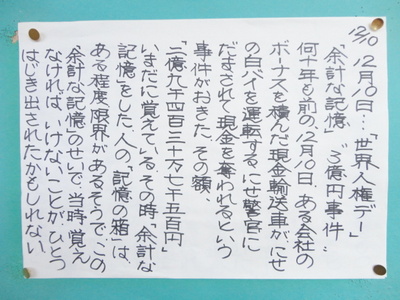 12/10
12月10日…「世界人権デー」
「余計な記憶」 3億円事件
何十年も前の12月10日、ある会社の
ボーナスを積んだ現金輸送車が、にせ
の白バイを運転するにせ警官に
だまされて現金を奪われるという
事件がおきた。その額、
「二億九千四百三十万七千五百円」
いまだに覚えている。その時「余計な
記憶」をした。人の「記憶の箱」は、
ある程度限界があるそうで、この
余計な記憶のせいで、当時、覚え
なければいけないことが、ひとつ
はじき出されたかもしれない